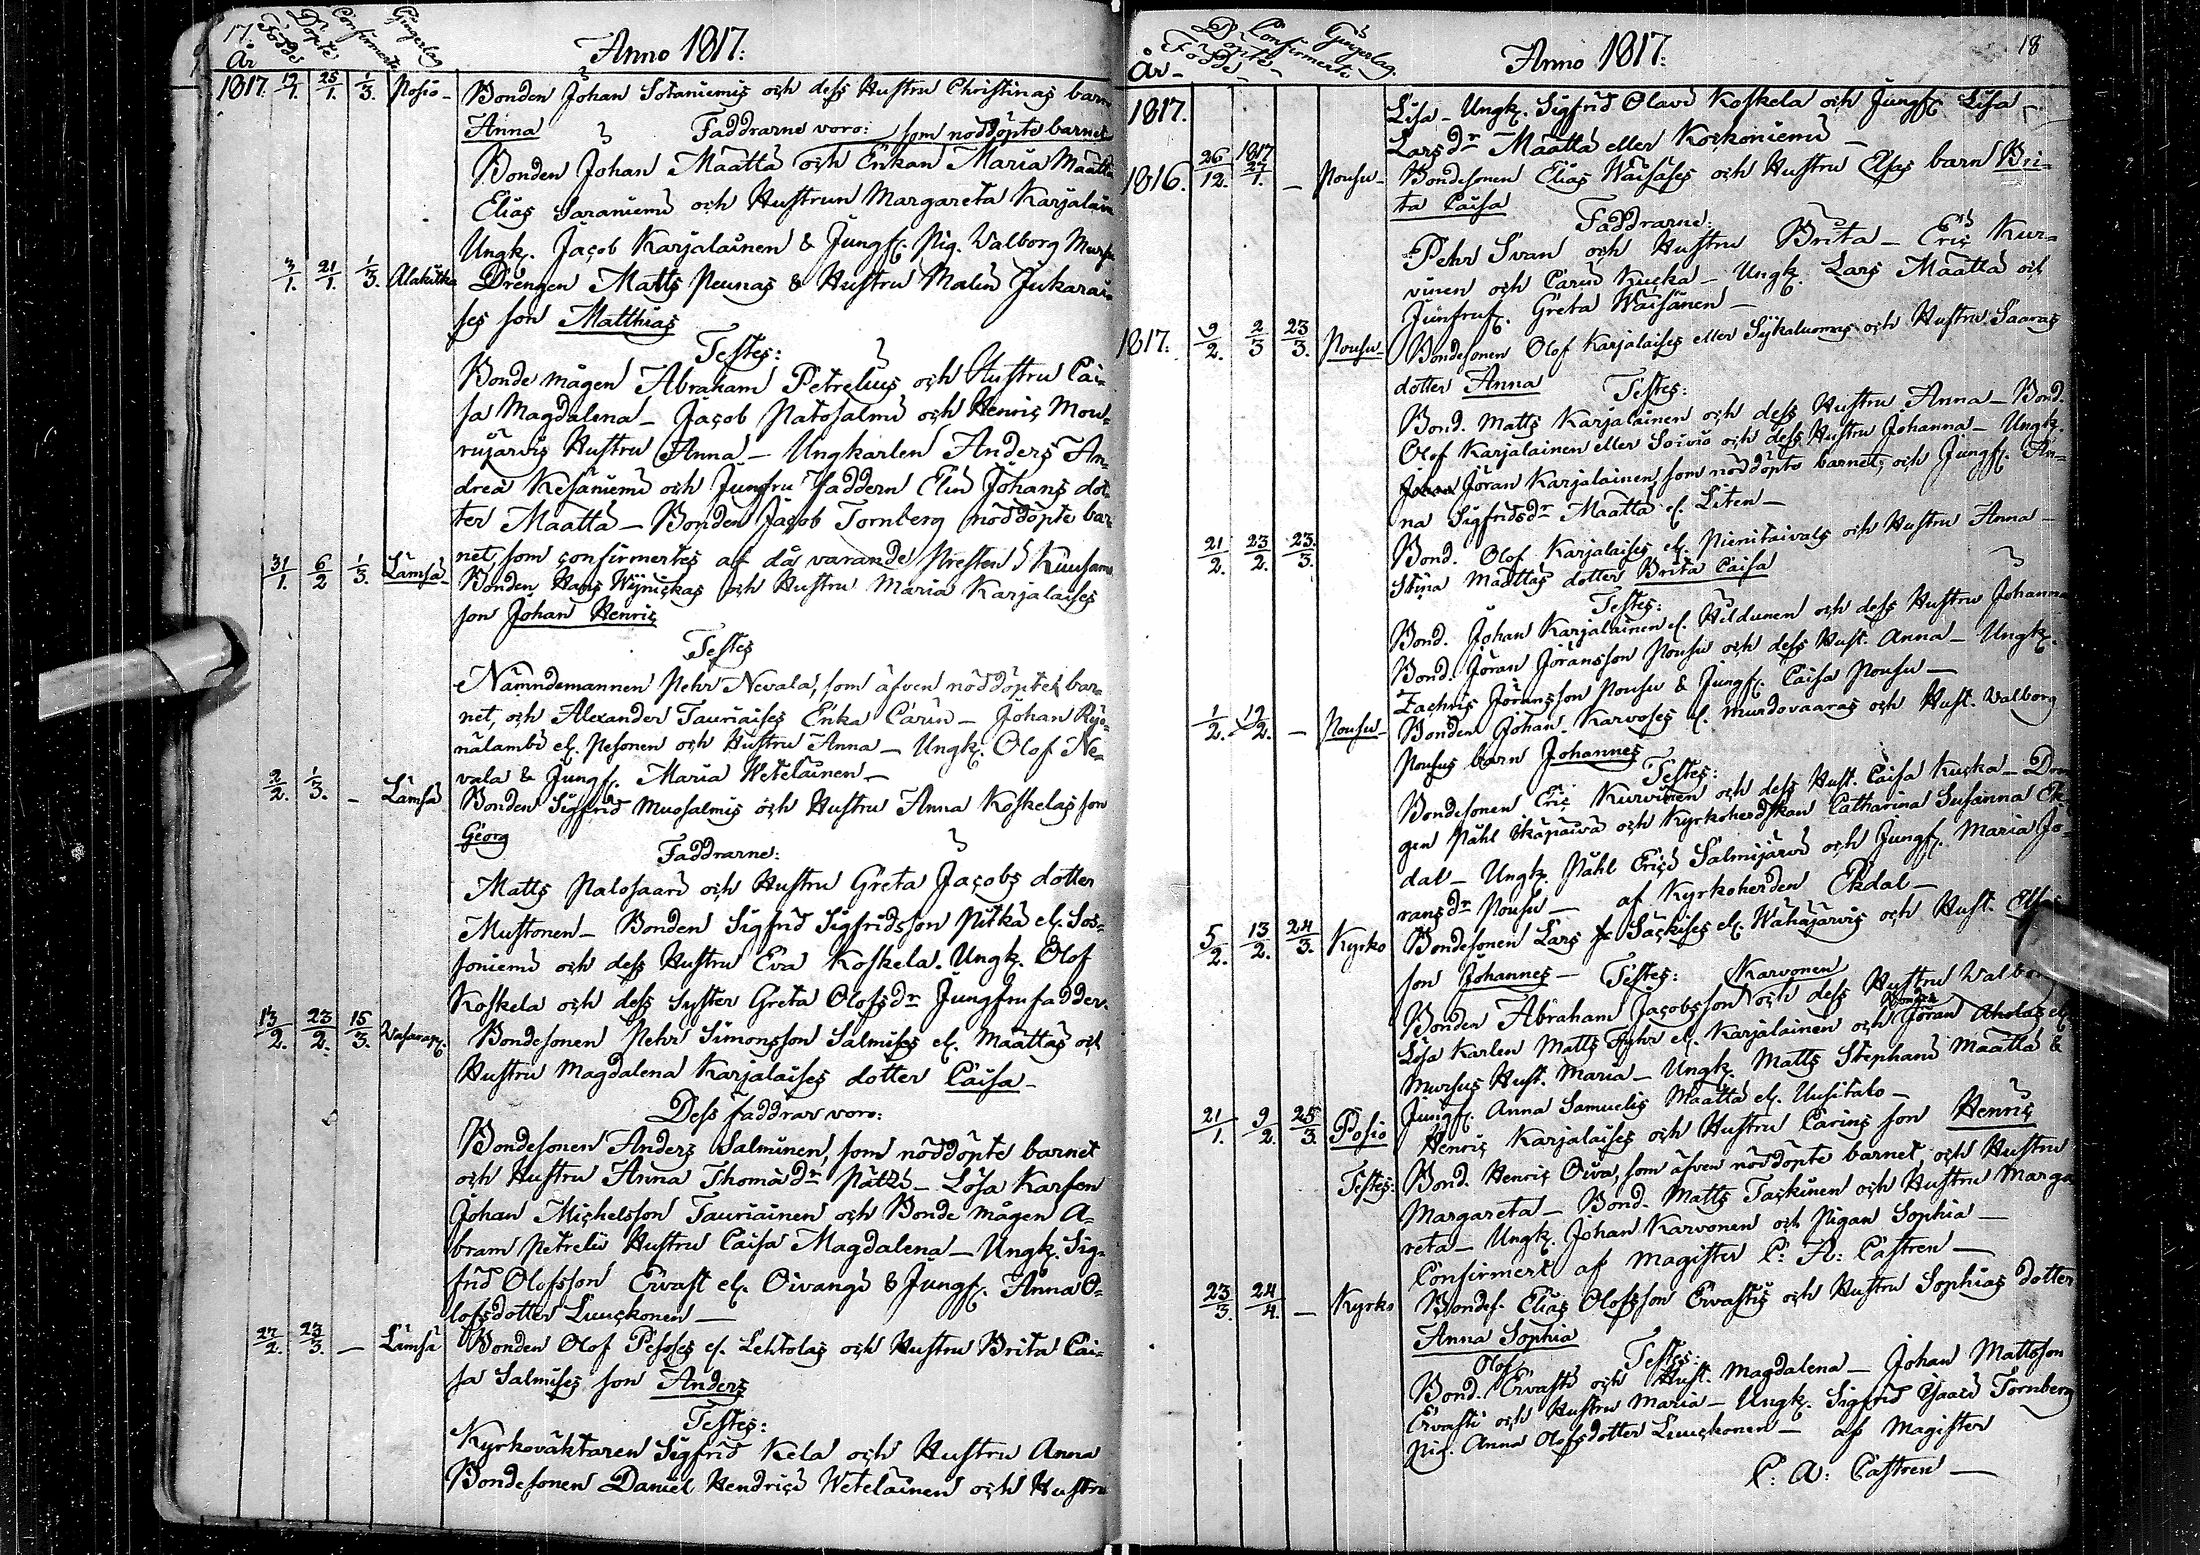 17.
År Födde Döpte Confirmerte Gingerlag
Anno 1817:
1817. 19/1. 25/1. 1/3. Posio - Bonden Johan Sotaniemis och dess Hustru Christinas barn
Anna Faddrarne voro: som nöddöpte barnet
Bonden Johan Määttä och Enkan Maria Määttä
Elias Saraniemi och Hustrun Margareta Karjalain
Ungk. Jacob Karjalainen & Jungf. Pig. Walborg
3/1. 21/1. 1/3. Alakitka Drengen Matts Peunas & Hustru Malin Jukarai
ses son Matthias
Testes:
Bonde mågen Abraham Petrelius och Hustru Cai-
sa Magdalena - Jacob Patosalmi och Henric Mou-
rujärvis Hustru Anna - Ungkarlen Anders An-
dreæ Kesäniemi och Jungfru Faddern Elin Johans dot
ter Määttä - Bonden Jacob Tornberg nöddöpte bar
net, som confirmertes af då varande Presten i Kuusamo
31/1. 6/2 1/3. Lämsä - Bonden Hans Wÿrickas och Hustru Maria Karjalaises
son Johan Henric
Testes
Nämndemannen Pehr Nevala, som äfven nöddöptes bar-
net, och Alexander Tauriaises Enka Carin - Johan
nälambi el. Pesonen och Hustru Anna - Ungk. Olof Ne-
vala & Jungf. Maria Weteläinen -
2/2. 1/3. - Lämsä Bonden Sigfrid Muosalmis och Hustru Anna Koskelas son
Georg
Faddrarne:
Matts Palosaari och Hustru Greta Jacobs dotter
Mustonen - Bonden Sigfrid Sigfridsson Pitkä el. Sos-
soniemi och dess Hustru Eva Koskela. Ungk. Olof
Koskela och dess Syster Greta Olofsdr Jungfrufadder.
13/2. 23/2. 15/3. Bondesonen Pehr Simonsson Salmises el. Määttäs och
Hustru Magdalena Karjalaises dotter Caisa -
Dess faddrar voro:
Bondesonen Anders Salminen, som nöddöpte barnet
och Hustru Anna Thomædr Pätsi - Lösa Karlen
Johan Michelsson Tauriainen och Bonde mågen A-
bram Petrelii Hustru Caisa Magdalena - Ungk. Sig-
frid Olofsson Ervast el. Oivangi & Jungf. Anna O-
lofsdotter Luuckonen -
22/2. 23/3. - Lämsä Bonden Olof Pesoses el. Lehtolas och Hustru Brita Cai-
sa Salmises son Anders
Testes:
Kyrkoväktaren Sigfrid Kela och Hustru Anna
Bondesonen Daniel Hendrici Weteläinen och Hustru
18
År - Födde - Döpte - Confirmerte Gingerlag.
Anno 1817:
1817. Lisa - Ungk. Sigfrid Olavi Koskela och Jungf. Lisa -
Larsdr Määttä eller Korkoniemi -
1816. 26/12. 1817 27/1. - Nousu - Bondesonen Elias Wäisäses och Hustru Elsas barn Bri-
ta Caisa
Faddrarne:
Pehr Svan och Hustru Brita - Eric Kur-
vinen och Carin Kucka - Ungk. Lars Määttä och
Junfruf. Greta Wäisänen -
1817. 9/2. 2/3 23/3. Nousu - Bondesonen Olof Karjalaises eller Sykaluomas och Hustru Saaras
dotter Anna Testes:
Bond. Matts Karjalainen och dess Hustru Anna - Bond.
Olof Karjalainen eller Soivio och dess Hustru Johanna - Ungk.
Johan Jöran Karjalainen, som nöddöpte barnet, och Jungf. An-
na Sigfridsdr Määttä el. Liten -
21/2. 23/2. 23/3. Bond. Olof Karjalaises el. Pienitaivals och Hustru Anna -
Stina Määttäs dotter Brita Caisa
Testes:
Bond. Johan Karjalainen el. Hildunen och dess Hustru Johanna
Bond. Jöran Jöransson Nousu och dess Hust. Anna - Ungk.
Zachris Jöransson Nousu & Jungf. Caisa Nousu -
1/2. 19/2. - Nousu - Bonden Johan Karvoses el. Murdovaaras och Hust. Walborg
Nousus barn Johannes
Testes:
Bondesonen Eric Kurvinen och dess Hust. Caisa Kucka - Dren
gen Påhl Ikäpäivä och Kyrkoherdskan Catharina Susanna Ek
dal - Ungk. Påhl Erici Salmijärvi och Jungf. Maria Jö-
ransdr Nousu - af Kyrkoherden Ekdal -
5/2. 13/2. 24/3. Kyrko Bondesonen Lars Säckises el. Wähäjärvis och Hust.
son Johannes - Testes: Karvonen
Bonden Abraham Jacobsson och dess Hustru Walborg
Lösa Karlen Matts Fyhr el. Karjalainen och Bonden Jöran Aholas el.
Mursus Hust. Maria - Ungk. Matts Stephani Määttä &
Jungf. Anna Samuelis Määttä el. Uusitalo -
21/1. 9/2. 25/3. Posio Henric Karjalaises och Hustru Carins son Henric
Testes: Bond. Henric Oiva, som äfven nöddöpte barnet, och Hustru
Margareta - Bond. Matts Tackinen och Hustru Marga
reta - Ungk. Johan Karvonen och Pigan Sophia -
Confirmert af Magister C: A: Castren -
23/3. 24/4. - Kyrko Bondes. Elias Olofsson Ervastis och Hustru Sophias dotter
Anna Sophia
Testes:
Bond. Olof Ervasti och Hust. Magdalena - Johan Mattsson
Ervasti och Hustru Maria - Ungk. Sigfrid Isaaci Tornberg
Pig. Anna Olofsdotter Luuckonen - af Magister
C: A: Castren -